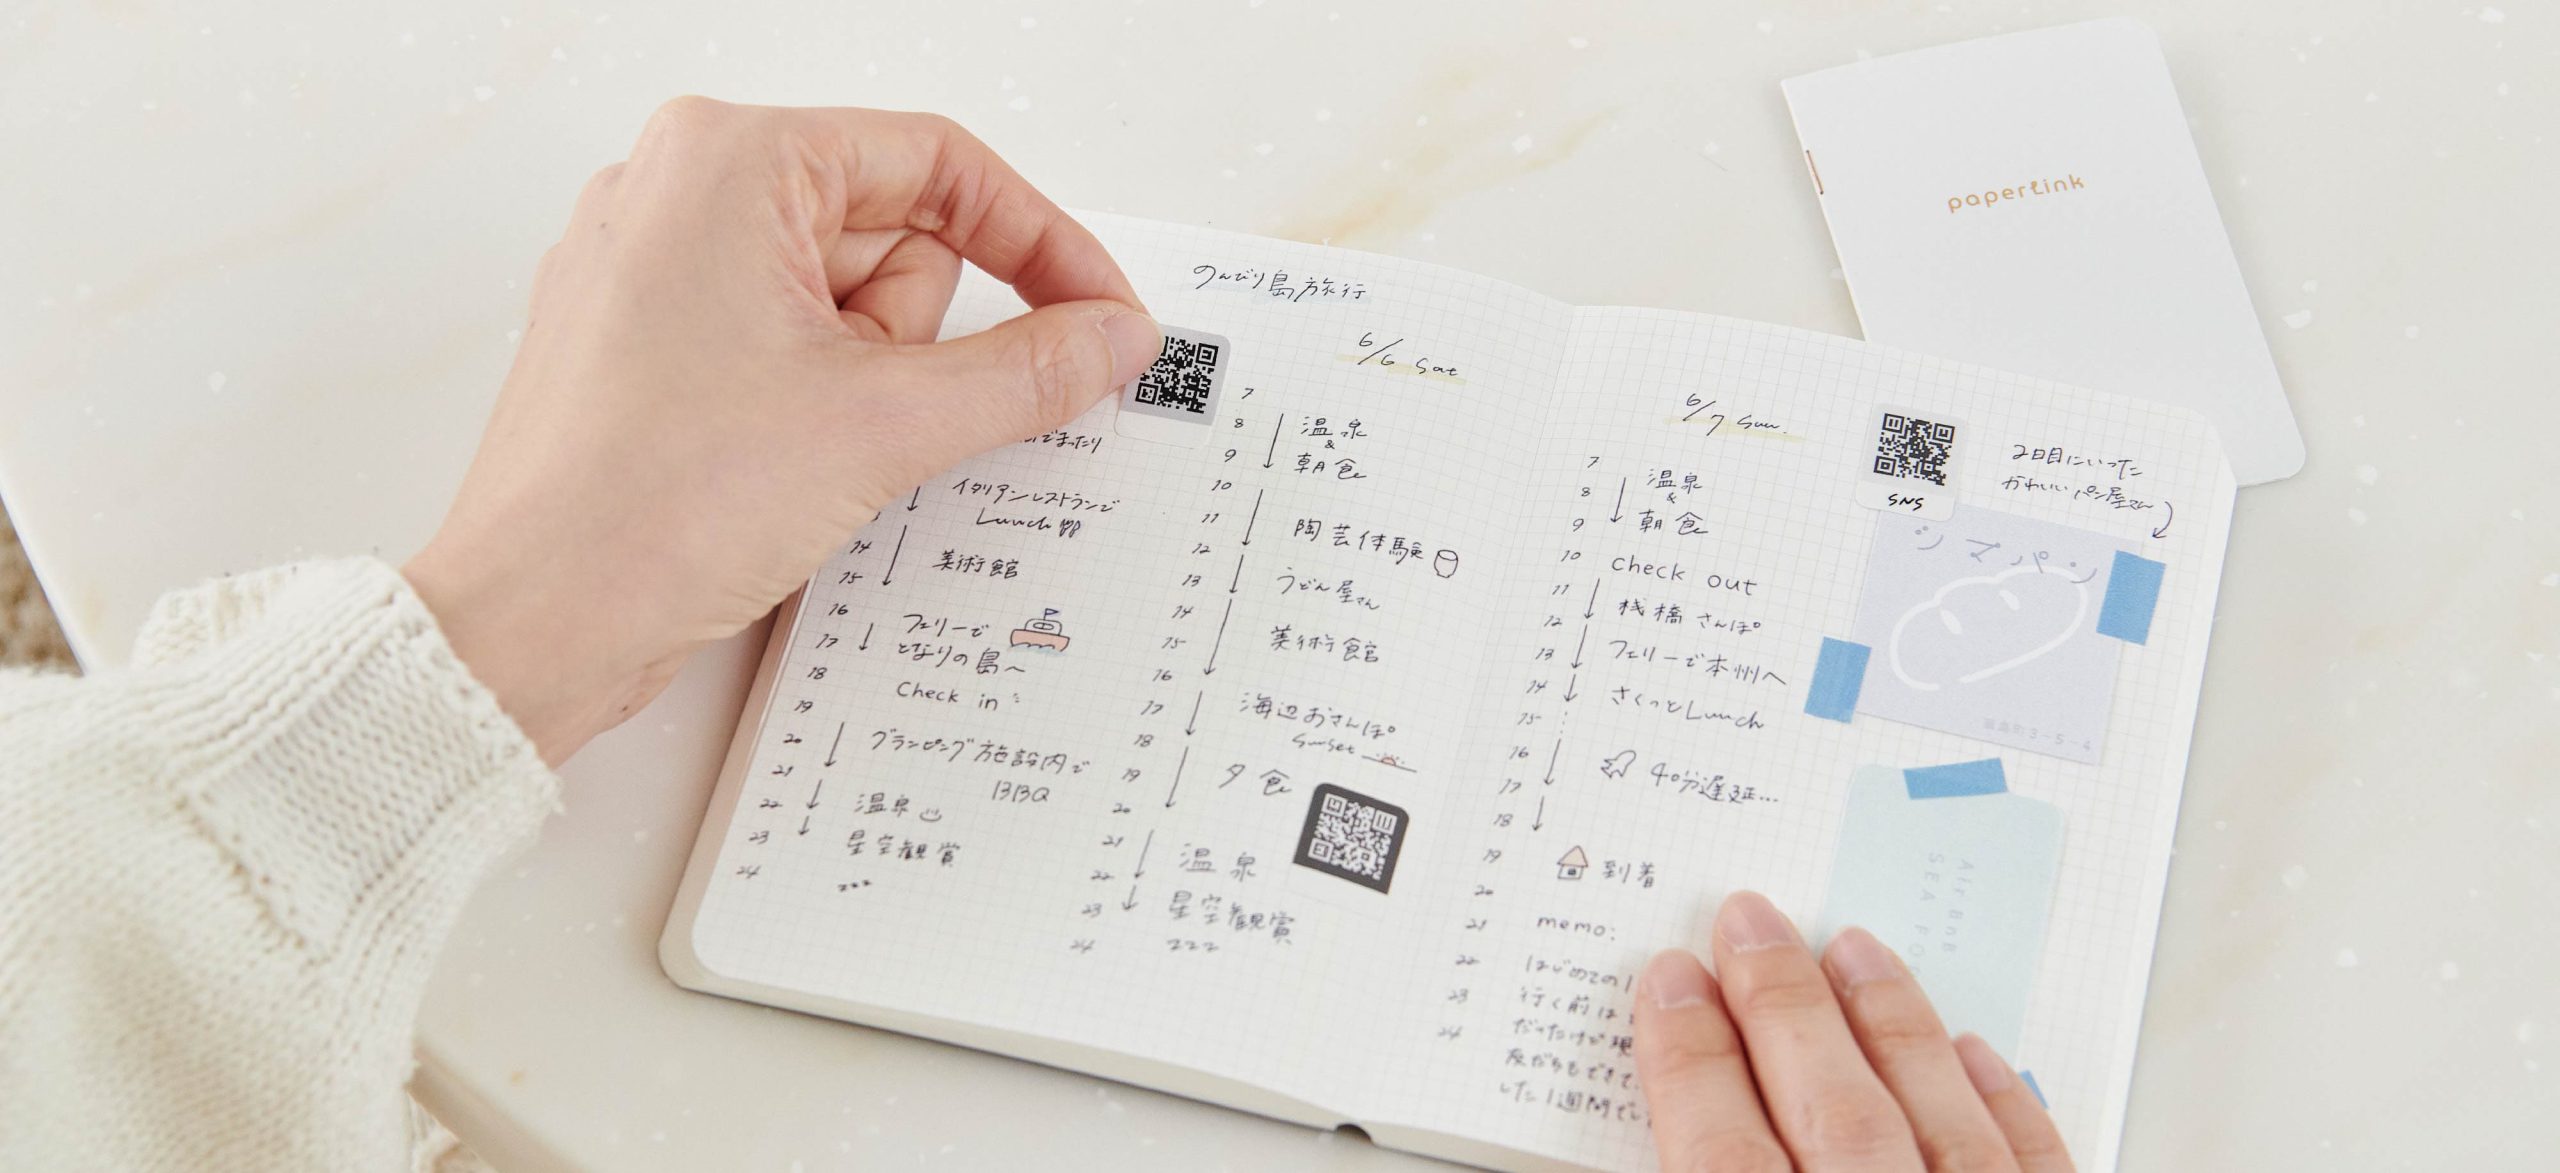 paperlink
のんびり島旅行
でまったり
イタリアンレストランで
Lunch
14
美術館
15
16
フェリーで
17
となりの島へ
18
Check in
19
20
グランピング施設内で
BBQ
21
22
温泉
23
星空観賞
24
zzz
6/6 Sat
7
8
温泉
&
9
朝食
10
11
陶芸体験
12
13
うどん屋さん
14
15
美術館
16
17
海辺おさんぽ
sunset
18
19
夕食
20
21
温泉
22
23
星空観賞
24
zzz
6/7 Sun.
7
8
温泉
&
9
朝食
10
check out
11
桟橋さんぽ
12
13
フェリーで本州へ
14
さくっとLunch
15
16
40分遅延...
17
18
19
到着
20
21
memo:
22
はじめての
23
行く前は
24
だったけど現
友だちもできて
した1週間でし
SNS
2日目にいった
かわいいパン屋さん
シマパン
3-5-4
Air BnB
SEA